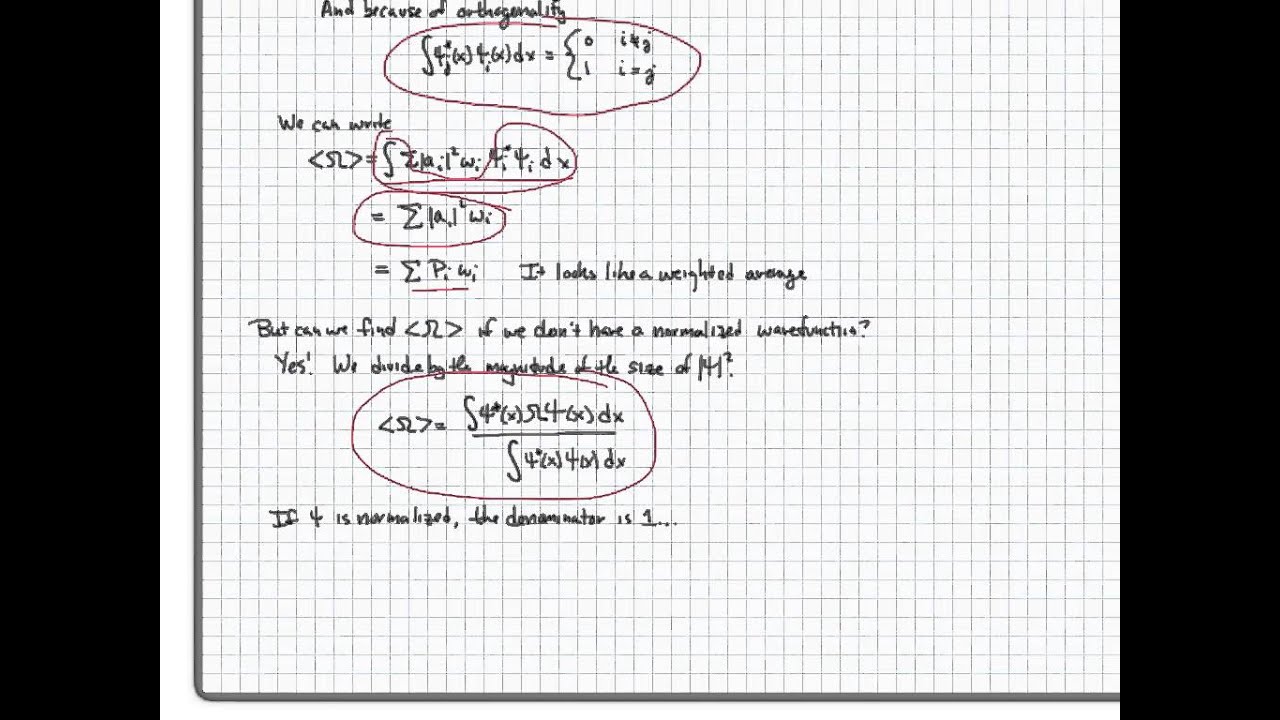 And because of orthogonality
∫ψj*(x)ψi(x)dx = { 0 i≠j
1 i=j
We can write
<Ω> = ∫Σ|ai|²ωi ψi*ψi dx
= Σ|ai|²ωi
= Σ Pi ωi It looks like a weighted average
But can we find <Ω> if we don't have a normalized wavefunction?
Yes! We divide by the magnitude of the size of |Ψ|².
<Ω> = ∫Ψ*(x)ΩΨ(x)dx
∫Ψ*(x)Ψ(x)dx
If Ψ is normalized, the denominator is 1...